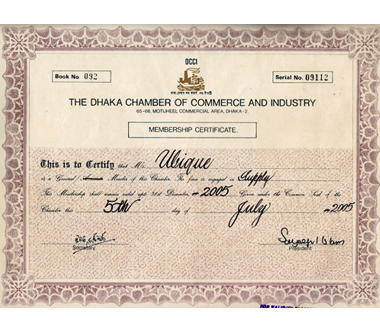 DCCI
Book No 092
Serial No. 09112
THE DHAKA CHAMBER OF COMMERCE AND INDUSTRY
65-66, MOTIJHEEL COMMERCIAL AREA, DHAKA-2
MEMBERSHIP CERTIFICATE.
This is to Certify that M/s Ubique
is a General / Associate Member of this Chamber. The firm is engaged in Supply
This Membership shall remain valid upto 31st December, 2005 Given under the Common Seal of the
Chamber this 5th day of July 2005
Secretary
President